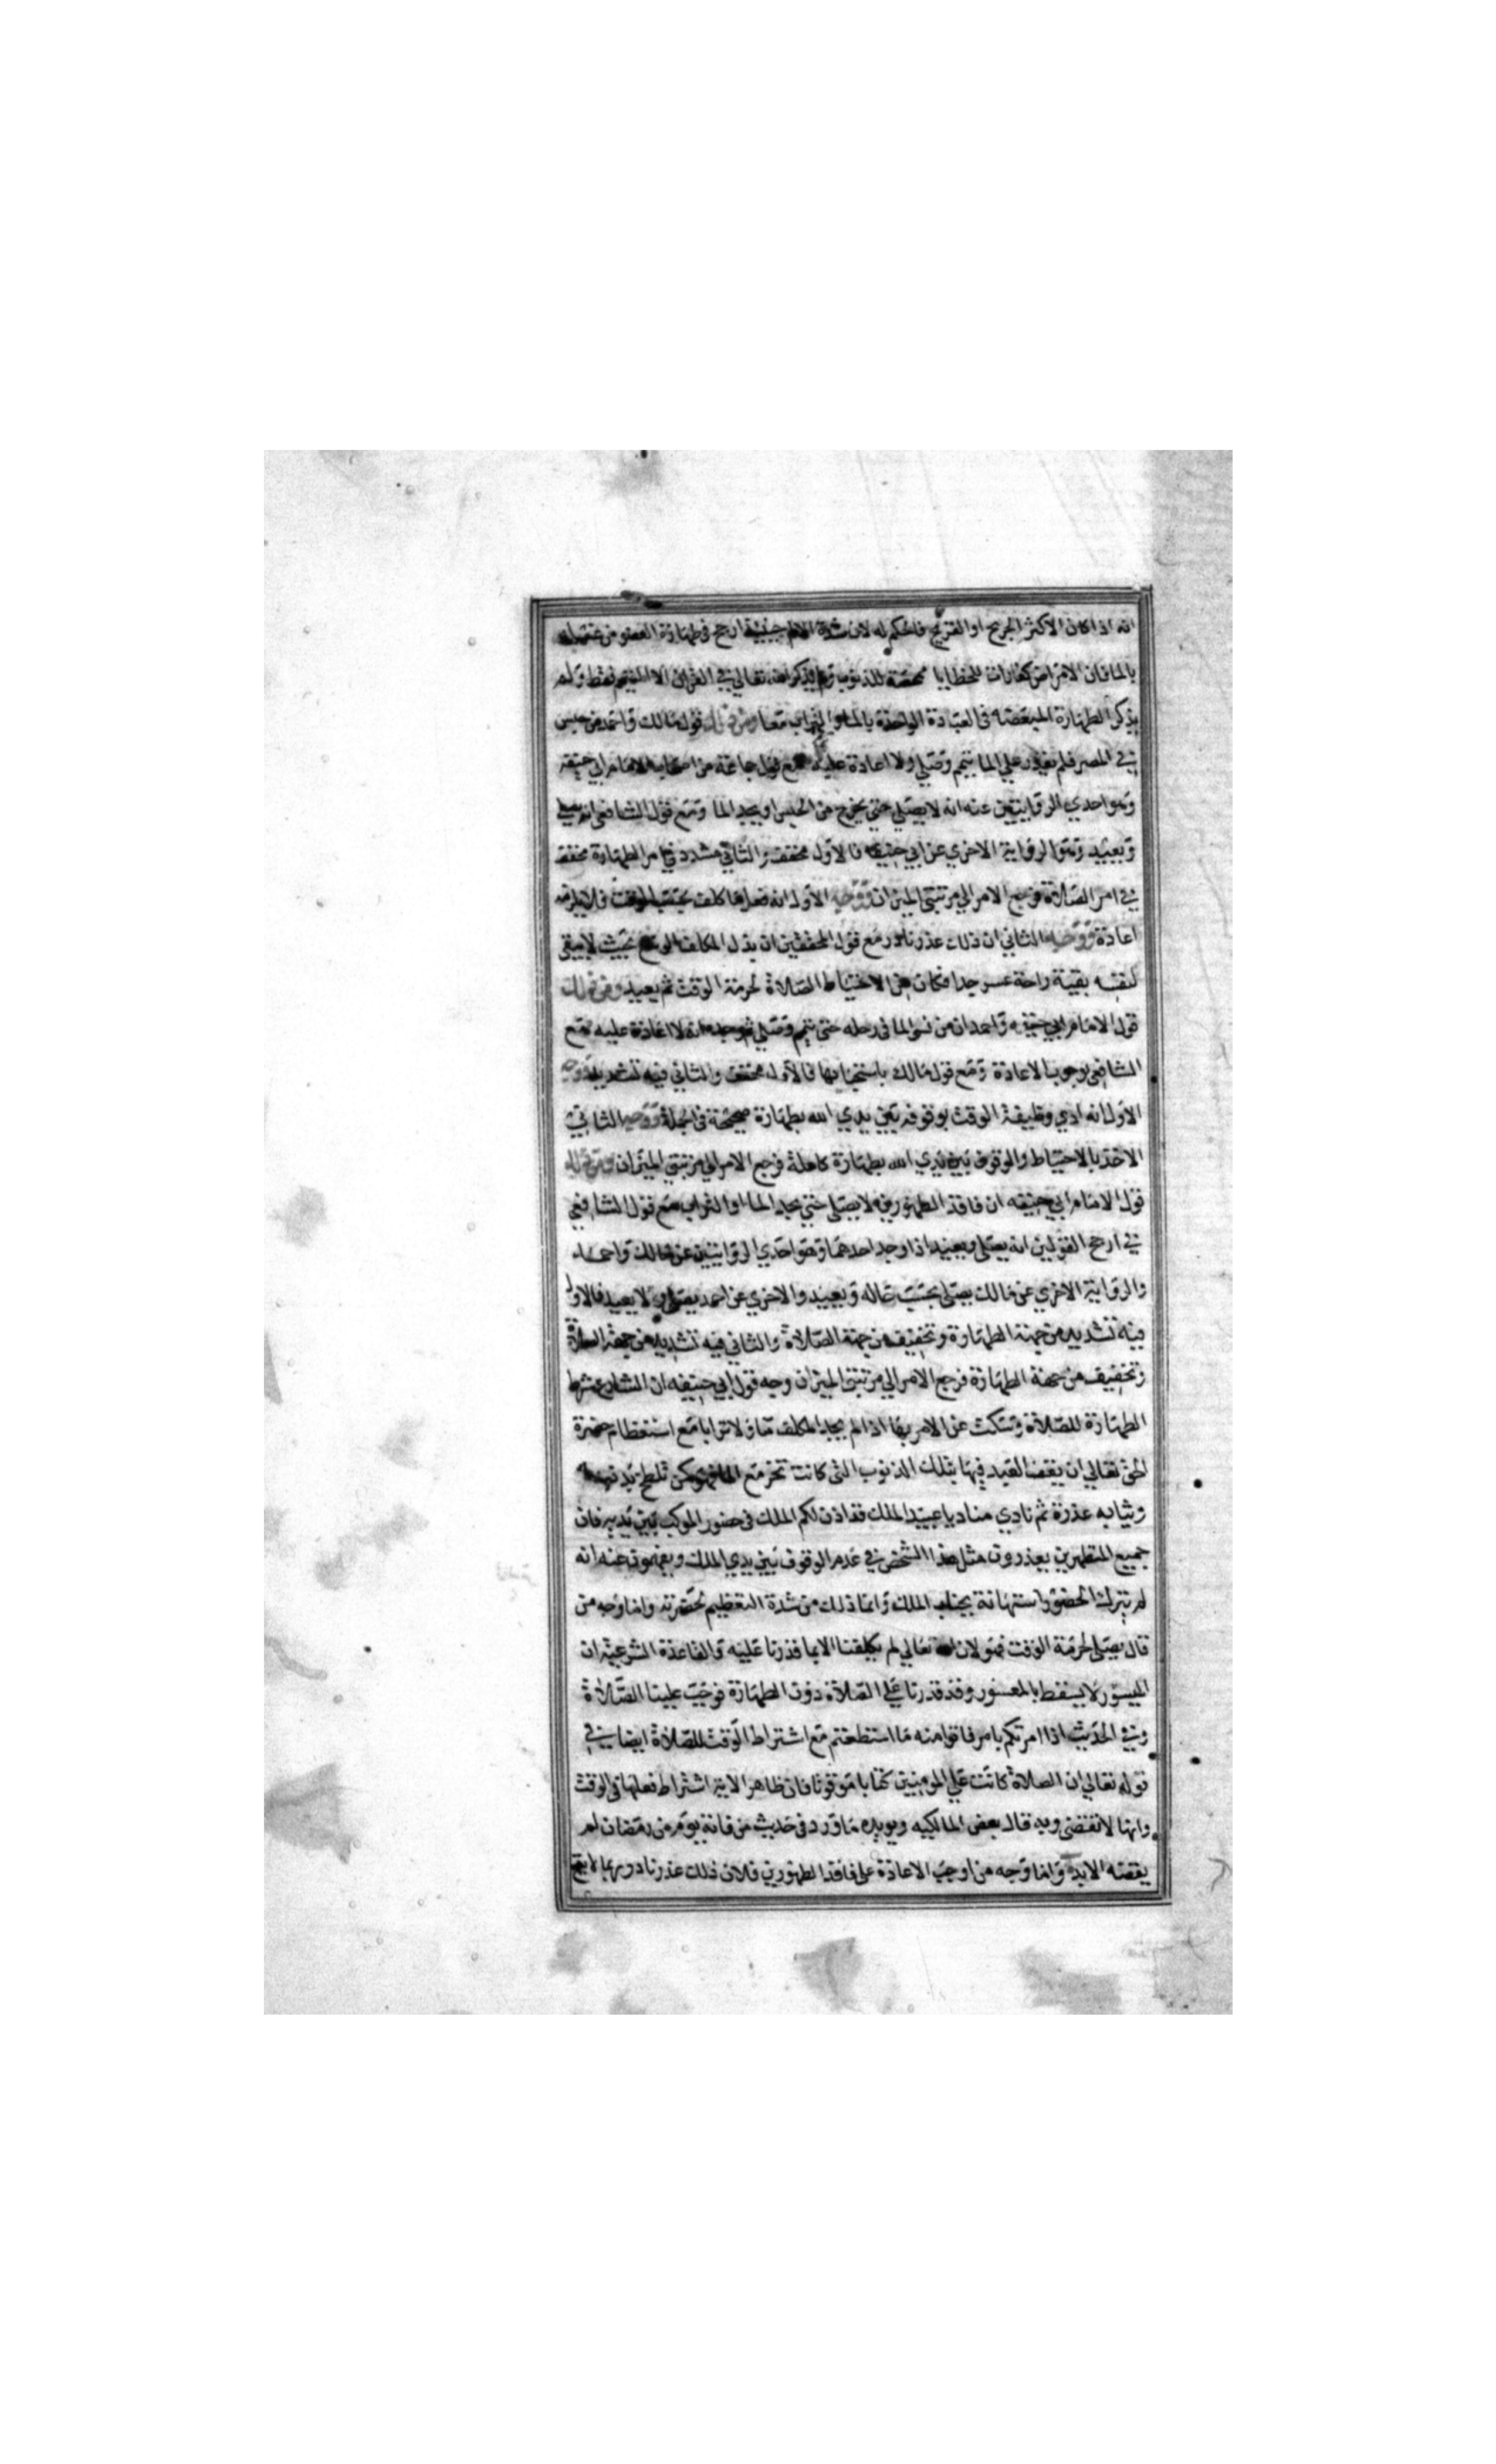 انه اذا كان الاكثر الجريح او القريح فالحكم له لان شدة الالم حينئذ ارجح في طهارة العضو من غسله
بالما فان الامراض كفارات للخطايا ممحصة للذنوب ولم يذكر الله تعالي في القران الا التيمم فقط ولم
يذكر الطهارة المبعضة في العبادة الواحدة بالما والتراب معا ومن ذلك قول مالك واحمد فيمن حبس
في المصر فلم يقدر علي الما يتيمم ويصلي ولا اعادة عليه مع قول جماعة من اصحاب الامام ابي حنيفه
وهو احدي الروايتين عنه انه لا يصلي حتي يخرج من الحبس او يجد الما ومع قول الشافعي انه يصلي
ويعيد وهو الرواية الاخري عن ابي حنيفه فالاول مخفف والثاني مشدد في امر الطهارة مخفف
في امر الصلاة فرجع الامر الي مرتبتي الميزان ووجه الاول انه فعل ما كلف بحسب الوقت فلا يلزمه
اعادة ووجه الثاني ان ذلك عذر نادر مع قول المحققين ان بذل المكلف الوسع بحيث لا يبقي
لنفسه بقية راحة عسر جدا فكان من الاحتياط الصلاة لحرمة الوقت ثم يعيد ومن ذلك
قول الامام ابي حنيفه واحمد ان من نسي الما في رحله حتي تيمم وصلي ثم وجده انه لا اعادة عليه مع
الشافعي بوجوب الاعادة ومع قول مالك باستحبابها فالاول مخفف والثاني فيه تشديد ووجه
الاول انه ادي وظيفة الوقت بوقوفه بين يدي الله بطهارة صحيحة في الجملة ووجه الثاني
الاخذ بالاحتياط والوقوف بين يدي الله بطهارة كاملة فرجع الامر الي مرتبتي الميزان ومن ذلك
قول الامام ابي حنيفه ان فاقد الطهورين لا يصلي حتي يجد الما او التراب مع قول الشافعي
في ارجح القولين انه يصلي ويعيد اذا وجد احدهما وهو احدي الروايتين عن مالك واحمد
والرواية الاخري عن مالك يصلي بحسب حاله ويعيد والاخري عن احمد يصلي ولا يعيد فالاول
فيه تشديد من جهة الطهارة وتخفيف من جهة الصلاة والثاني فيه تشديد من جهة الصلاة
وتخفيف من جهة الطهارة فرجع الامر الي مرتبتي الميزان وجه قول ابي حنيفه ان الشارع شرط
الطهارة للصلاة وسكت عن الامر بها اذا لم يجد المكلف ما ولا ترابا مع استعظام حضرة
الحق تعالي ان يقف العبد فيها بتلك الذنوب التي كانت تخر مع الما فهو كمن تلطخ بدنه
وثيابه عذرة ثم نادي مناد يا عبيد الملك قد اذن لكم الملك في حضور الموكب بين يديه فان
جميع المتطهرين يعذرون مثل هذا الشخص في عدم الوقوف بين يدي الملك ويفهمون عنه انه
لم يترك الحضور استهانة بجناب الملك وانما ذلك من شدة التعظيم لحضرته واما وجه من
قال يصلي لحرمة الوقت فهو لان الله تعالي لم يكلفنا الا بما قدرنا عليه والقاعدة الشرعية ان
الميسور لا يسقط بالمعسور وقد قدرنا علي الصلاة دون الطهارة فوجبت علينا الصلاة
وفي الحديث اذا امرتكم بامر فاتوا منه ما استطعتم مع اشتراط الوقت للصلاة ايضا في
قوله تعالي ان الصلاة كانت علي المومنين كتابا موقوتا فان ظاهر الاية اشتراط فعلها في الوقت
وانها لا تقضي وبه قال بعض المالكيه ويويده ما ورد في حديث من فاته يوم من رمضان لم
يقضه الابد واما وجه من اوجب الاعادة علي فاقد الطهورين فلان ذلك عذر نادر ربما لا يقع